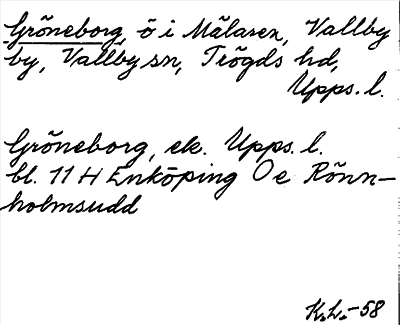 Gröneborg, ö i Mälaren, Vallby
by, Vallby sn, Trögds hd,
Upps. l.
Gröneborg, ek. Upps. l.
bl. 11 H Enköping O e Rönn-
holmsudd
K.L.-58